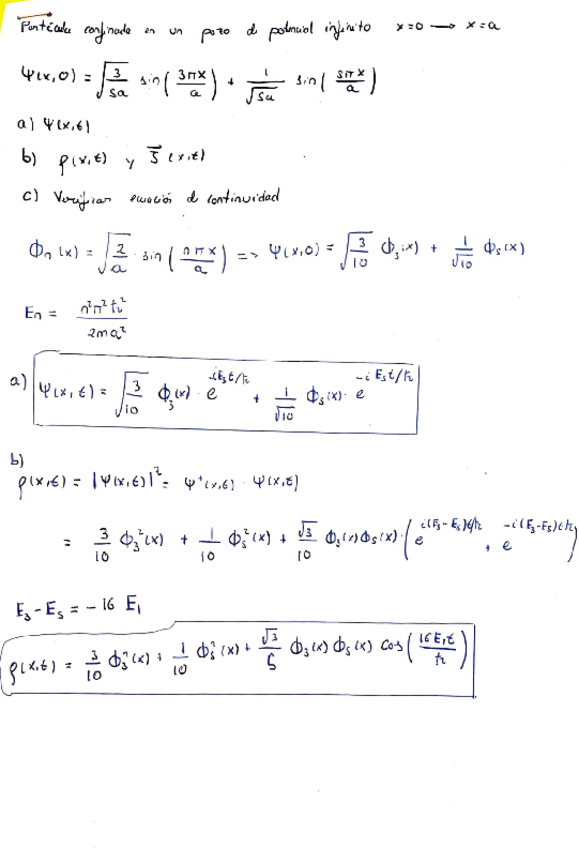 Partícula confinada en un pozo de potencial infinito x=0 → x=a
Ψ(x,0) = √(3/5a) sin(3πx/a) + 1/√(5a) sin(5πx/a)
a) Ψ(x,t)
b) ρ(x,t) y J⃗(x,t)
c) Verificar ecuación de continuidad
Φn(x) = √(2/a) · sin(nπx/a) => Ψ(x,0) = √(3/10) Φ₃(x) + 1/√10 Φ₅(x)
En = n²π²ħ²/2ma²
a) Ψ(x,t) = √(3/10) Φ₃(x) · e^(-iE₃t/ħ) + 1/√10 Φ₅(x) · e^(-iE₅t/ħ)
b)
ρ(x,t) = |Ψ(x,t)|² = Ψ*(x,t) · Ψ(x,t)
= 3/10 Φ₃²(x) + 1/10 Φ₅²(x) + √3/10 Φ₃(x)Φ₅(x) · (e^(i(E₃-E₅)t/ħ) + e^(-i(E₃-E₅)t/ħ))
E₃-E₅ = -16 E₁
ρ(x,t) = 3/10 Φ₃²(x) + 1/10 Φ₅²(x) + √3/5 Φ₃(x) Φ₅(x) cos(16E₁t/ħ)